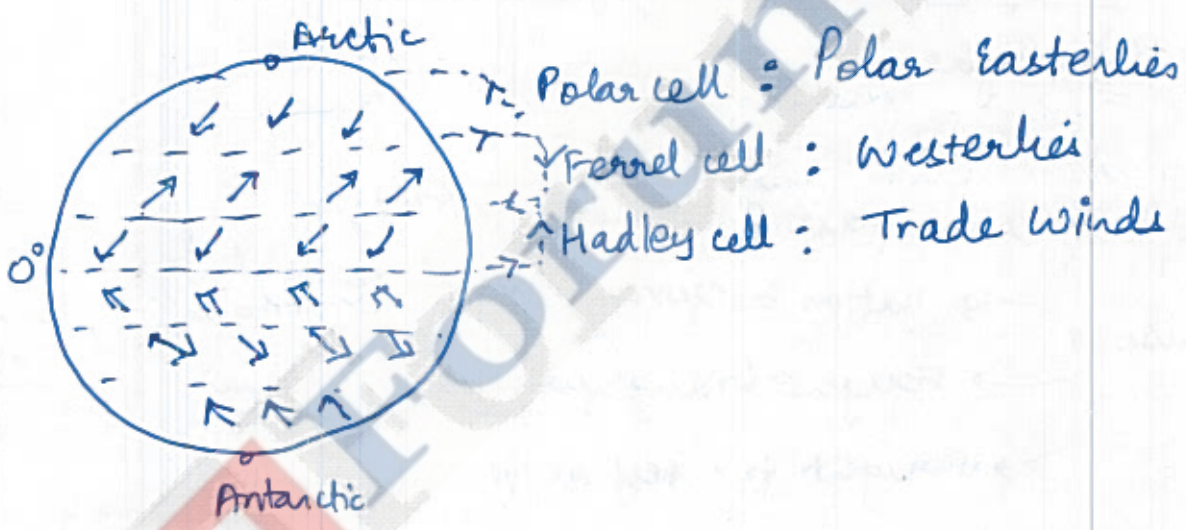 Arctic
Polar cell : Polar Easterlies
Ferrel cell : Westerlies
Hadley cell : Trade Winds
0°
Antarctic
Forum